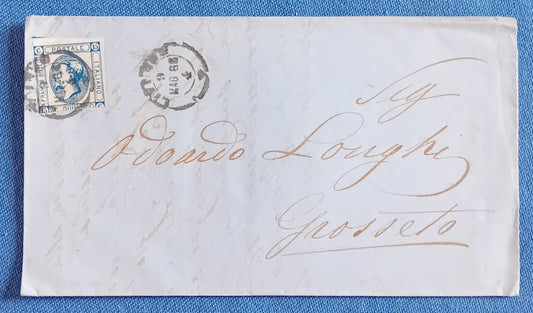 C 15
POSTALE
ITALIANO
9
MAG 63
Sig
Odoardo Longhi
Grosseto